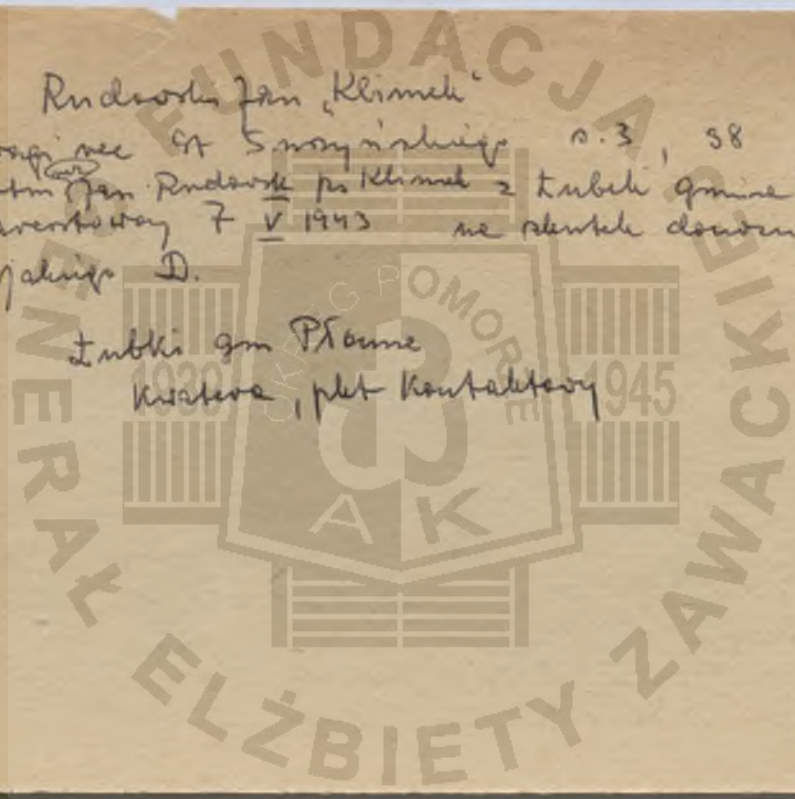 Rudowski Jan „Klimek"
St Smozyńskiego s. 3, 98
Jan Rudowsk ps Klimek z Łubek gmina
7 V 1943 na skutek
D.
Łubki gm Płonne
Kwatera, pkt Kontaktowy
FUNDACJA
GENERAŁ ELŻBIETY ZAWACKIEJ
OKRĘG POMORZE
1939 1945
AK